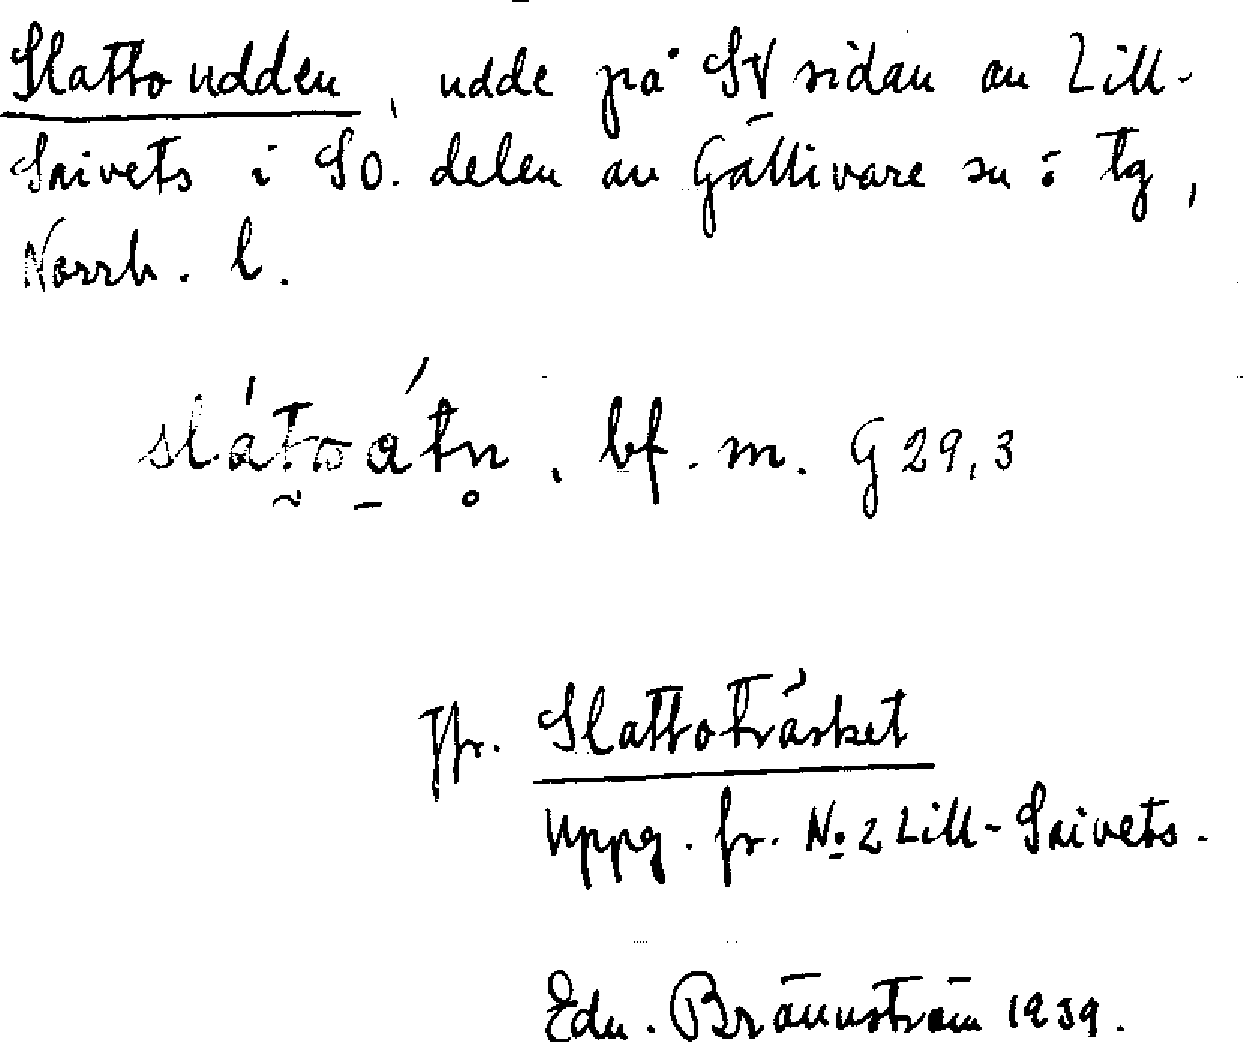 Slattoudden, udde på SV sidan av Lill-
Saivets i SO. delen av Gällivare sn ö tg,
Norrb. l.
bf. m. G 29,3
Jfr. Slattoträsket
Uppg. fr. No 2 Lill-Saivets.
Edv. Brännström 1939.